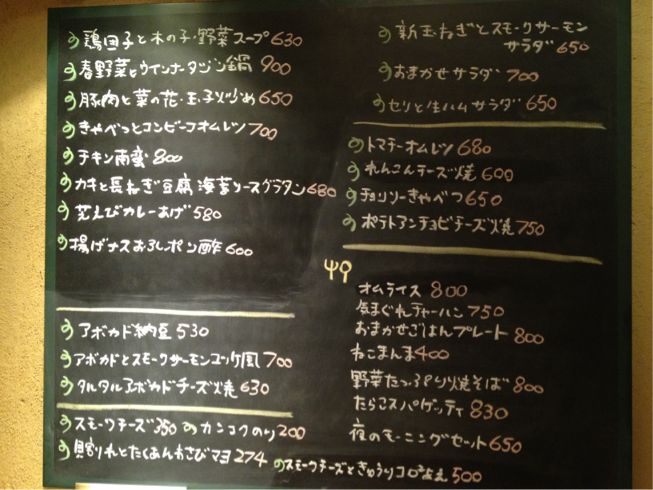 鶏団子と木の子・野菜スープ 630
春野菜とウインナータジン鍋 900
豚肉と菜の花・玉子炒め 650
きゃべつとコンビーフオムレツ 700
チキン南蛮 800
カキと長ねぎ豆腐 海苔ソースグラタン 680
芝えびカレーあげ 580
揚げナスおろしポン酢 600
アボカド納豆 530
アボカドとスモークサーモンユッケ風 700
タルタルアボカドチーズ焼 630
スモークチーズ 350 カンコクのり 200
貝割れとたくあんわさびマヨ 274
スモークチーズときゅうりコロコロあえ 500
新玉ねぎとスモークサーモン
サラダ 650
おまかせサラダ 700
セリと生ハムサラダ 650
トマトオムレツ 680
れんこんチーズ焼 600
チョリソーきゃべつ 650
ポテトアンチョビチーズ焼 750
オムライス 800
気まぐれチャーハン 750
おまかせごはんプレート 800
ねこまんま 400
野菜たっぷり焼そば 800
たらこスパゲッティ 830
夜のモーニングセット 650